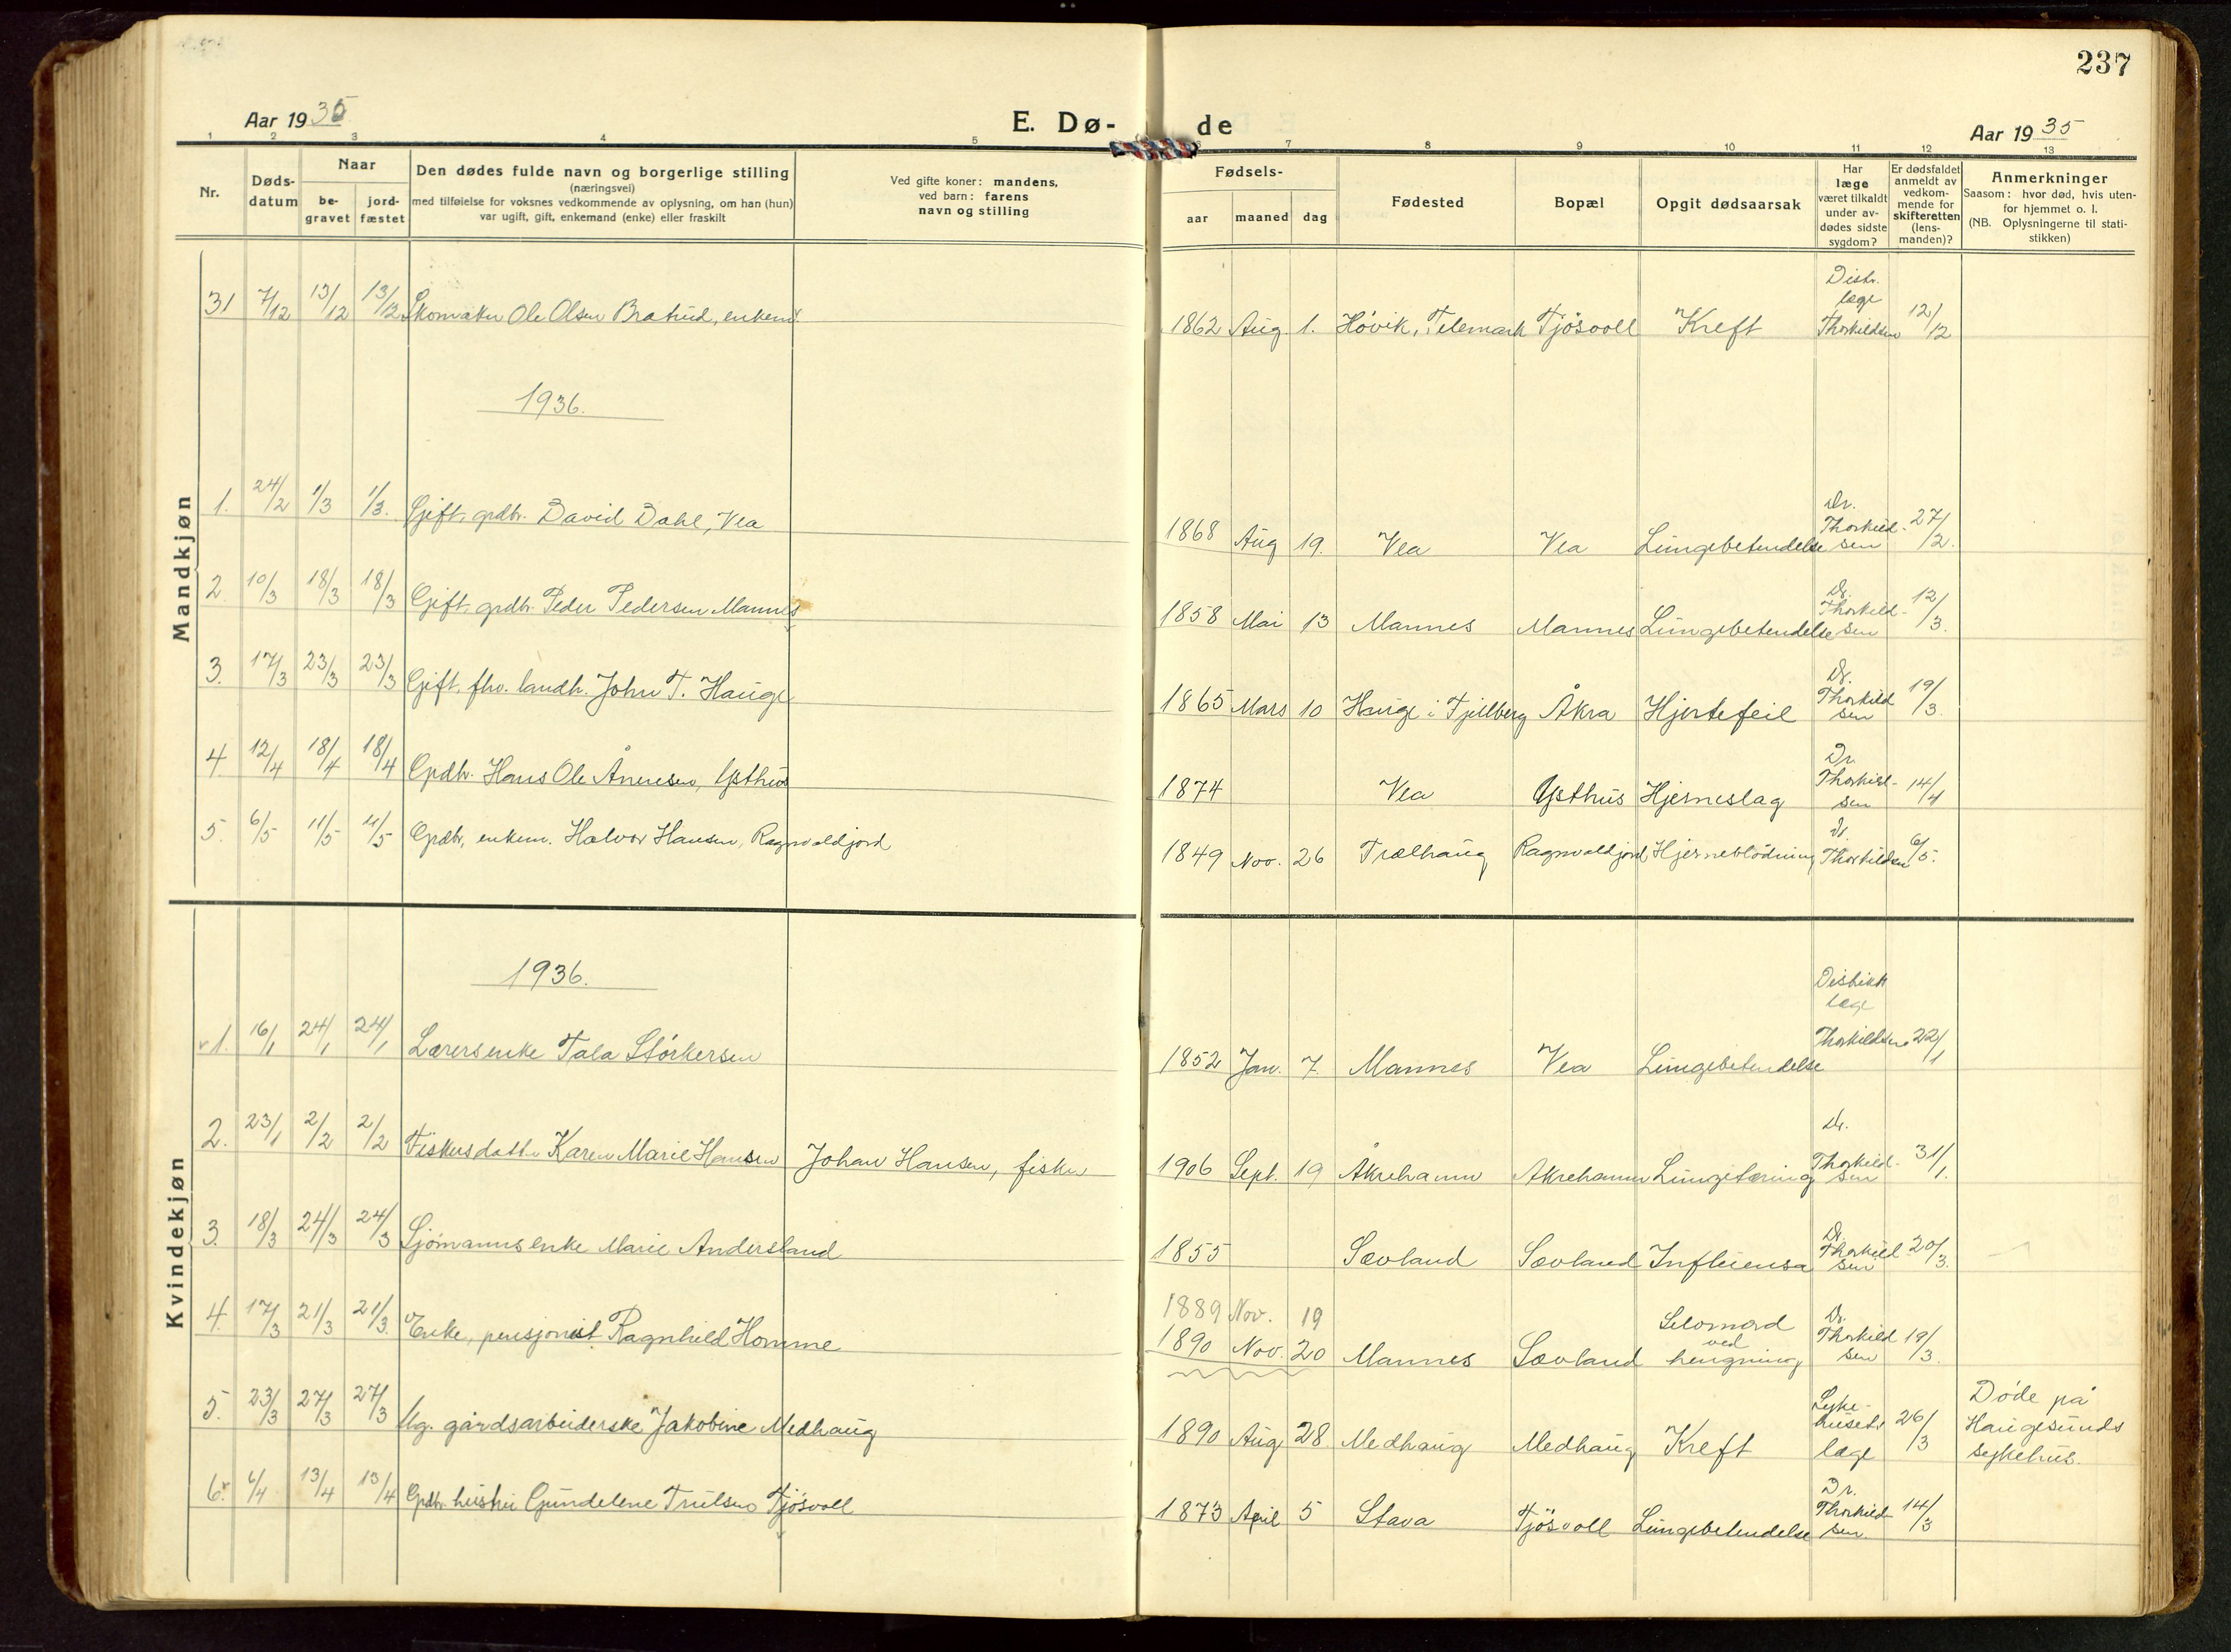 237
Aar 1935
E. Dø-
de
Aar 1935
1 2 3 4 5 6 7 8 9 10 11 12 13
Nr.
Døds-
datum
Naar
be-
gravet
jord-
fæstet
Den dødes fulde navn og borgerlige stilling
(næringsvei)
med tilføielse for voksnes vedkommende av oplysning, om han (hun)
var ugift, gift, enkemand (enke) eller fraskilt
Ved gifte koner: mandens,
ved barn: farens
navn og stilling
Fødsels-
aar maaned dag
Fødested
Bopæl
Opgit dødsaarsak
Har
læge
været tilkaldt
under av-
dødes sidste
sygdom?
Er dødsfaldet
anmeldt av
vedkom-
mende for
skifteretten
(lens-
manden)?
Anmerkninger
Saasom: hvor død, hvis uten-
for hjemmet o. l.
(NB. Oplysningerne til stati-
stikken)
Mandkjøn
31 7/12 13/12 13/12 Skomaker Ole Olsen Bratrud, enkem. 1862 Aug 1. Hövik, Telemark Tjösvoll Kreft Distr. læge Thorkildsen 12/12
1936.
1. 24/2 1/3 1/3. Gift, grdbr. David Dahl, Vea 1868 Aug 19. Vea Vea Lungebetendelse Dr. Thorkildsen 27/2.
2 10/3 18/3 18/3 Gift, grdbr. Peder Pedersen Mannes 1858 Mai 13 Mannes Mannes Lungebetendelse Dr. Thorkildsen 12/3.
3. 17/3 23/3 23/3 Gift, fhv. landh. John T. Hauge 1865 Mars 10 Hauge i Fjellberg Åkra Hjertefeil Dr. Thorkildsen 19/3.
4 12/4 18/4 18/4 Grdbr. Hans Ole Ånensen, Østhus 1874 Vea Østhus Hjerneslag Dr. Thorkildsen 14/4
5. 6/5 11/5 11/5 Grdbr, enkem. Halvor Hansen, Ragnvaldjord 1849 Nov. 26 Trælhaug Ragnvaldjord Hjerneblödning Dr. Thorkildsen 6/5.
Kvindekjøn
1936.
1. 16/1 24/1 24/1 Lærersenke Tala Störkersen 1852 Jan. 7. Mannes Vea Lungebetendelse Distrikts læge Thorkildsen 22/1
2. 23/1 2/2 2/2 Fiskersdatter Karen Marie Hansen Johan Hansen, fisker 1906 Sept. 19 Åkrehamn Åkrehamn Lungetæring Dr. Thorkildsen 31/1.
3. 18/3 24/3 24/3 Sjömannsenke Marie Andersland 1855 Sævland Sævland Influensa Dr. Thorkildsen 20/3.
4. 17/3 21/3 21/3. Enke, pensjonist Ragnhild Homme 1889 Nov. 19
1890 Nov. 20 Mannes Sævland Selvmord ved hengning Dr. Thorkildsen 19/3.
5. 23/3 27/3 27/3 Ug. gårdsarbeiderske Jakobine Medhaug 1890 Aug 28 Medhaug Medhaug Kreft Sykehusets læge 26/3 Döde på Haugesunds sykehus.
6. 6/4 13/4 13/4 Grdbr. hustru Gundelene Trulsen Tjösvoll 1873 April 5 Stava Tjösvoll Lungebetendelse Dr. Thorkildsen 14/3